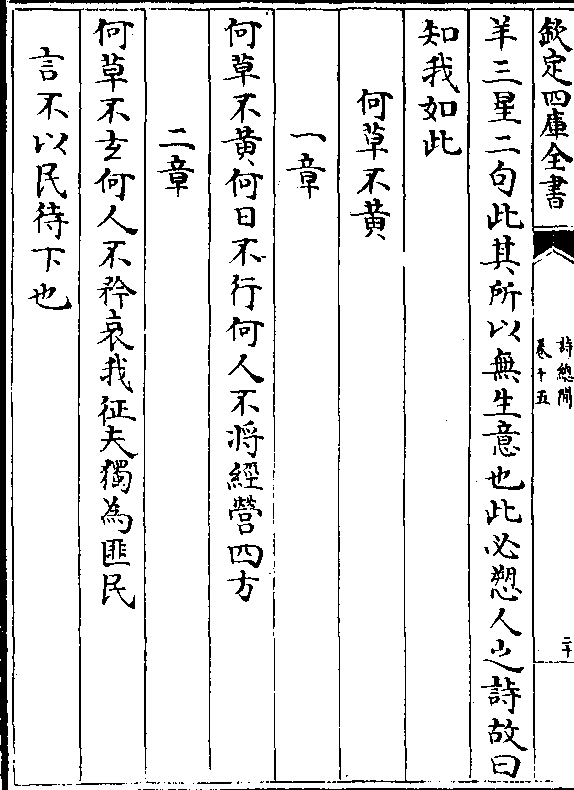 欽定四庫全書
詩總聞
卷十五
二十
羊三星二句此其所以無生意也此必愬人之詩故曰
知我如此
何草不黃
一章
何草不黃何日不行何人不將經營四方
二章
何草不玄何人不矜哀我征夫獨為匪民
言不以民待下也